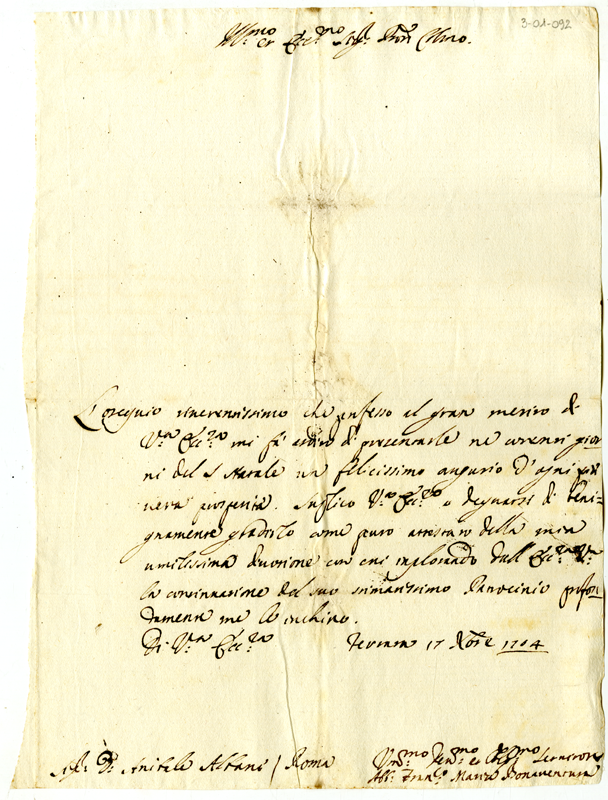 3-01-092
Ill.mo et Ecc.mo Sig.r Pron Col.mo
L'ossequio sincerissimo che professo al gran merito di
V.ra Ecc.za mi fà ardito di presentarle ne correnti gior
ni del S Natale un felicissimo augurio d'ogni più
vera prosperità. Suplico V.ra Ecc.za a degnarsi di beni=
gnamente gradirlo come puro attestato della mia
umilissima divotione con cui implorando dall'Ecc.za V.ra
la continuatione del suo stimatissimo Patrocinio profon
damente me le inchino.
Di V.ra Ecc.za Ferrara 17 Xbre 1704
Sig.r D. Anibale Albani / Roma
Um.mo Dev.mo et Obl.mo Servitore
Fran.co Maria Bonaventura